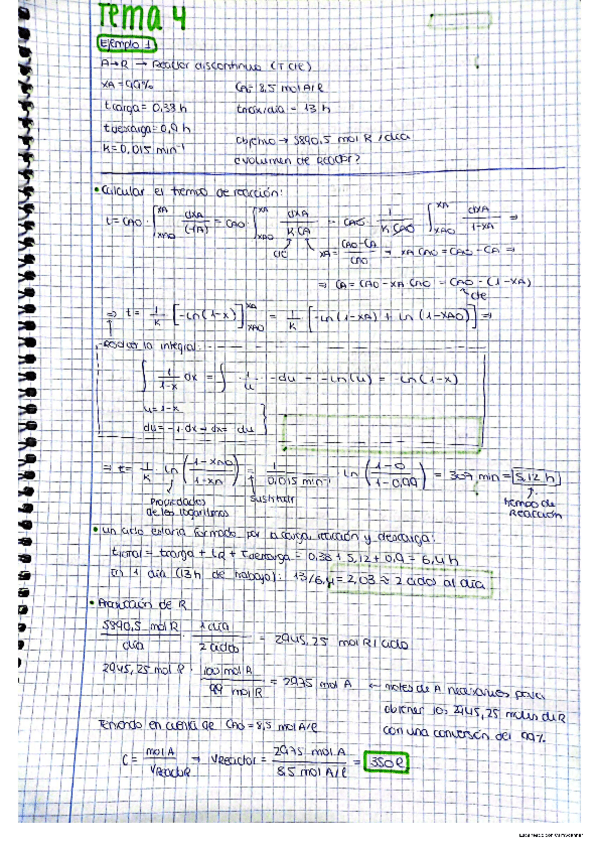 Tema 4
Ejemplo 1
A→R → Reactor discontinuo (TCTE)
XA = 99% CA0 = 8,5 mol A/l
t carga = 0,38 h tmáx/día = 13 h
t descarga = 0,9 h objetivo → 5890,5 mol R/día
K = 0,015 min⁻¹ ¿volumen de reactor?
• Calcular el tiempo de reacción:
t = CA0 · ∫ dXA/(-rA) = CA0 ∫ dXA/(K CA) = CA0 · 1/(K CA0) ∫ dXA/(1-XA) ⇒
cte XA = (CA0-CA)/CA0 → XA CA0 = CA0 - CA ⇒
⇒ CA = CA0 - XA CA0 = CA0 · (1-XA)
cte
⇒ t = 1/K · [-ln(1-x)] XA XA0 = 1/K [-ln(1-XA) + ln(1-XA0)] ⇒
resolver la integral:
∫ 1/(1-x) dx = ∫ 1/u · -du = -ln(u) = -ln(1-x)
u = 1-x
du = -1·dx → dx = -du
⇒ t = 1/K · ln((1-XA0)/(1-XA)) = 1/(0,015 min⁻¹) ln((1-0)/(1-0,99)) = 307 min = 5,12 h
Propiedades de los logaritmos
sustituir
tiempo de reacción
• Un ciclo estaría formado por la carga, reacción y descarga:
t total = t carga + tR + t descarga = 0,38 + 5,12 + 0,9 = 6,4 h
En 1 día (13h de trabajo): 13/6,4 = 2,03 ≈ 2 ciclos al día
• Producción de R
5890,5 mol R/día · 1 día/2 ciclos = 2945,25 mol R/ciclo
2945,25 mol R · 100 mol A/99 mol R = 2975 mol A ← moles de A necesarios para
obtener los 2945,25 moles de R
con una conversión del 99%.
Teniendo en cuenta de CA0 = 8,5 mol A/l
C = mol A/V reactor → V reactor = 2975 mol A/8,5 mol A/l = 350 l